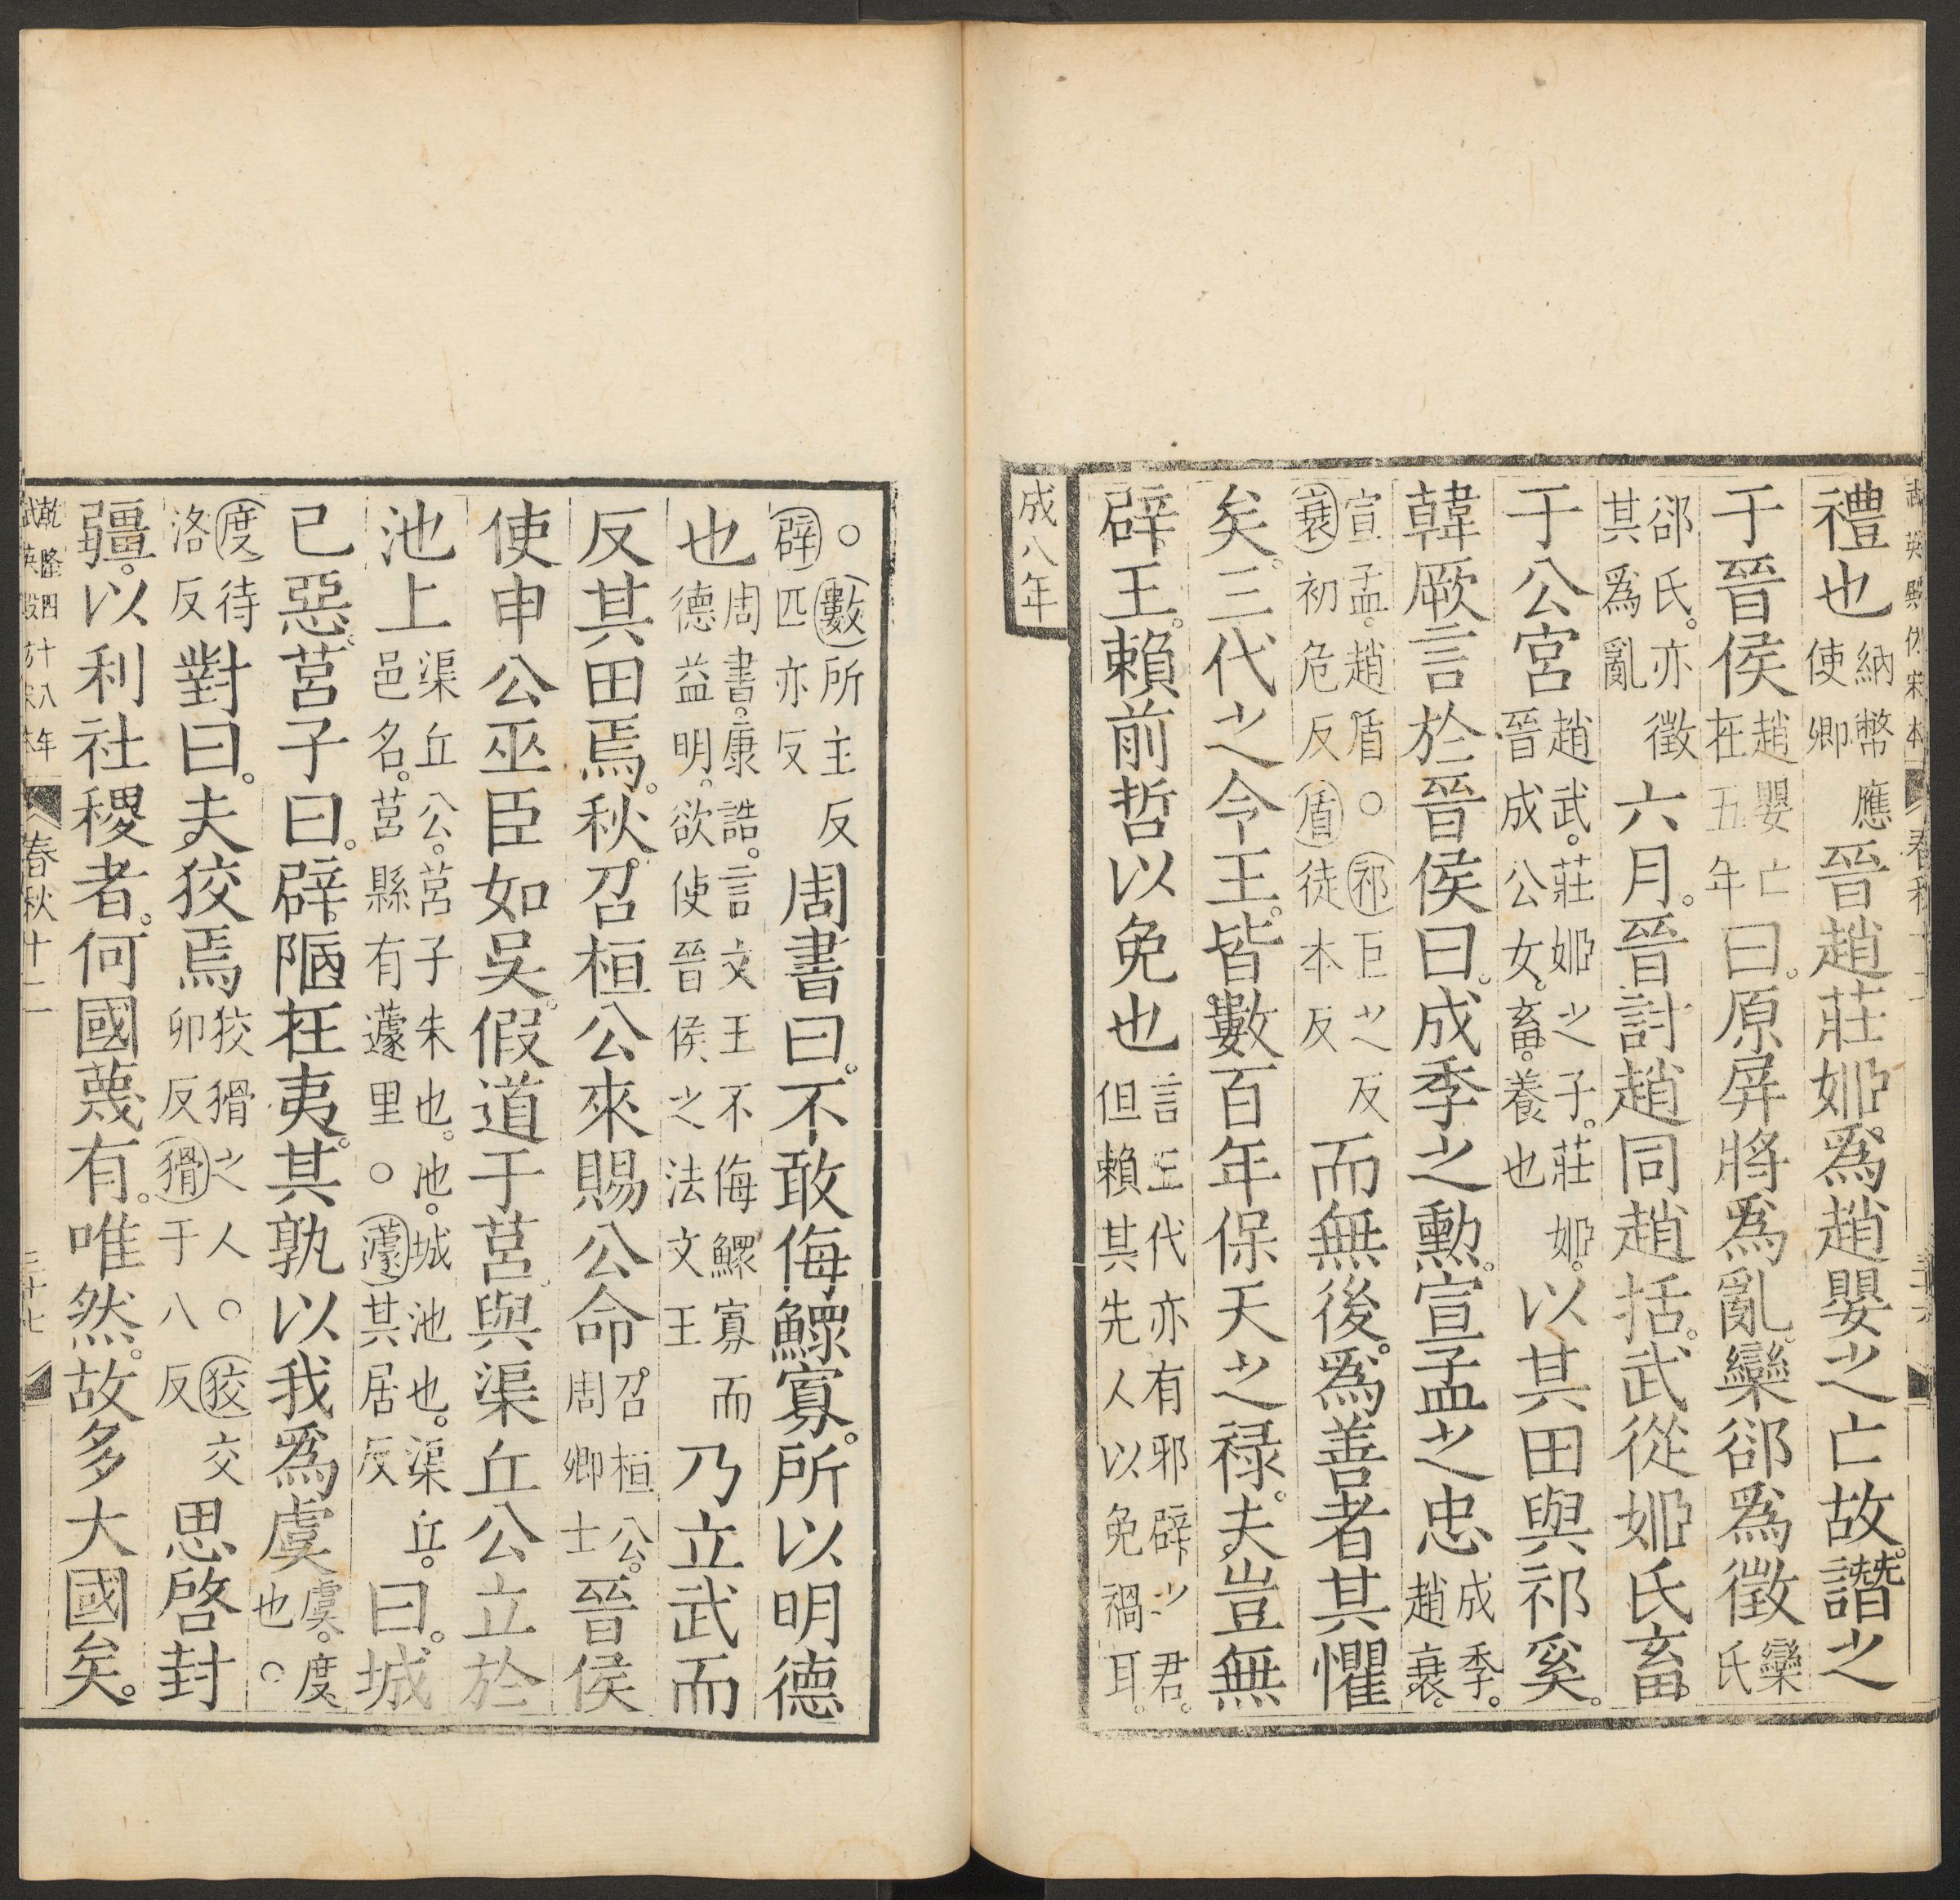 武英殿仿宋本 春秋十二 三十六
禮也納幣應使卿晉趙莊姬爲趙嬰之亡故譖之
于晉侯趙嬰亡在五年曰原屏將爲亂欒郤爲徵欒氏
郤氏亦徵其爲亂六月晉討趙同趙括武從姬氏畜
于公宮趙武莊姬之子莊姬晉成公女畜養也以其田與祁奚
韓厥言於晉侯曰成季之勳宣孟之忠成季趙衰
宣孟趙盾○祁巨之反衰初危反盾徒本反而無後爲善者其懼
矣三代之令王皆數百年保天之祿夫豈無
辟王賴前哲以免也言三代亦有邪辟之君但賴其先人以免禍耳
成八年
○數所主反辟匹亦反周書曰不敢侮鰥寡所以明德
也周書康誥言文王不侮鰥寡而德益明欲使晉侯之法文王乃立武而
反其田焉秋召桓公來賜公命召桓公周卿士晉侯
使申公巫臣如吳假道于莒與渠丘公立於
池上渠丘公莒子朱也池城池也渠丘邑名莒縣有蘧里○蘧其居反曰城
已惡莒子曰辟陋在夷其孰以我爲虞虞度也○
度待洛反對曰夫狡焉狡猾之人○狡交卯反猾于八反思啓封
疆以利社稷者何國蔑有唯然故多大國矣
乾隆四十八年武英殿仿宋本 春秋十二 三十七